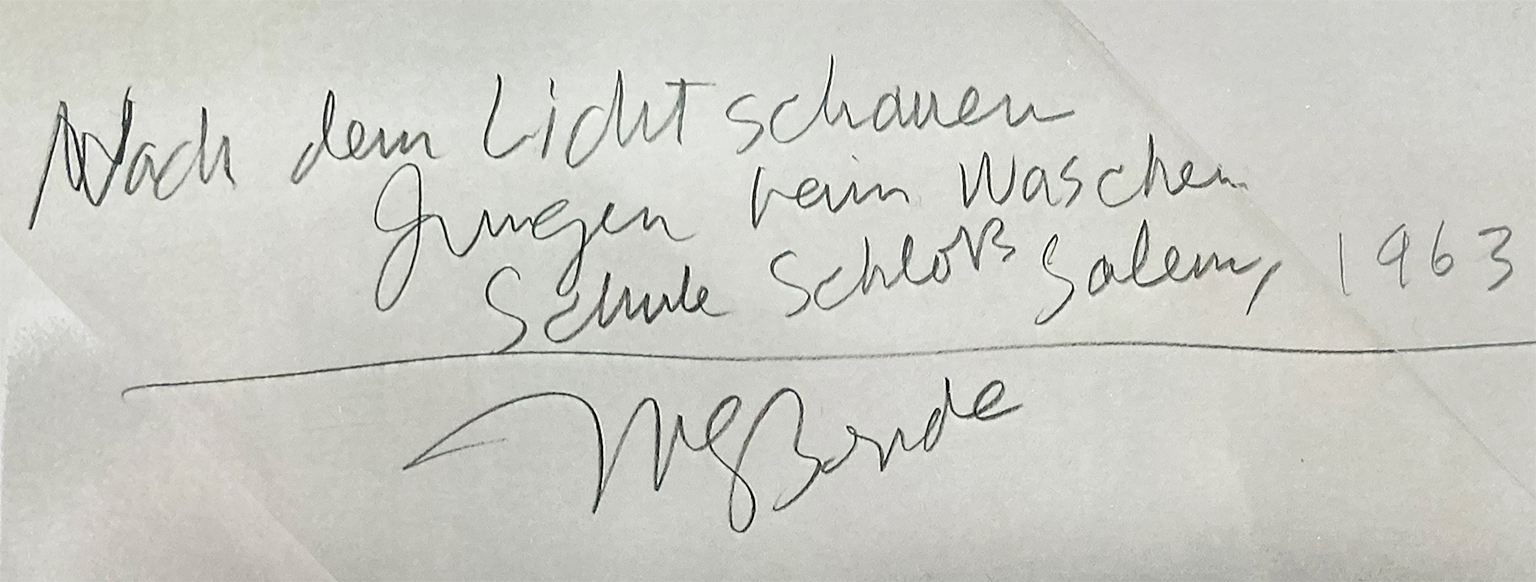 Nach dem Licht schauen
Jungen beim Waschen
Schule Schloß Salem, 1963